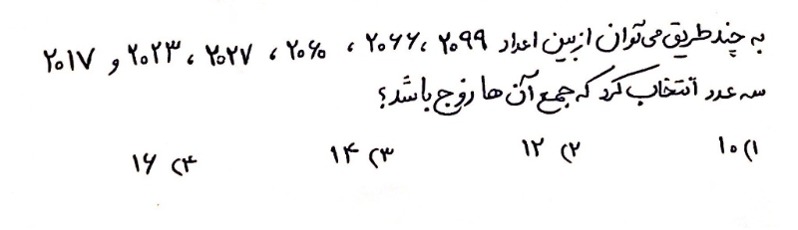 به چند طریق می‌توان از بین اعداد ۲۰۹۹، ۲۰۶۶، ۲۰۶۰، ۲۰۲۷، ۲۰۲۳ و ۲۰۱۷
سه عدد انتخاب کرد که جمع آن ها زوج باشد؟
۱) ۱۰ ۲) ۱۲ ۳) ۱۴ ۴) ۱۶